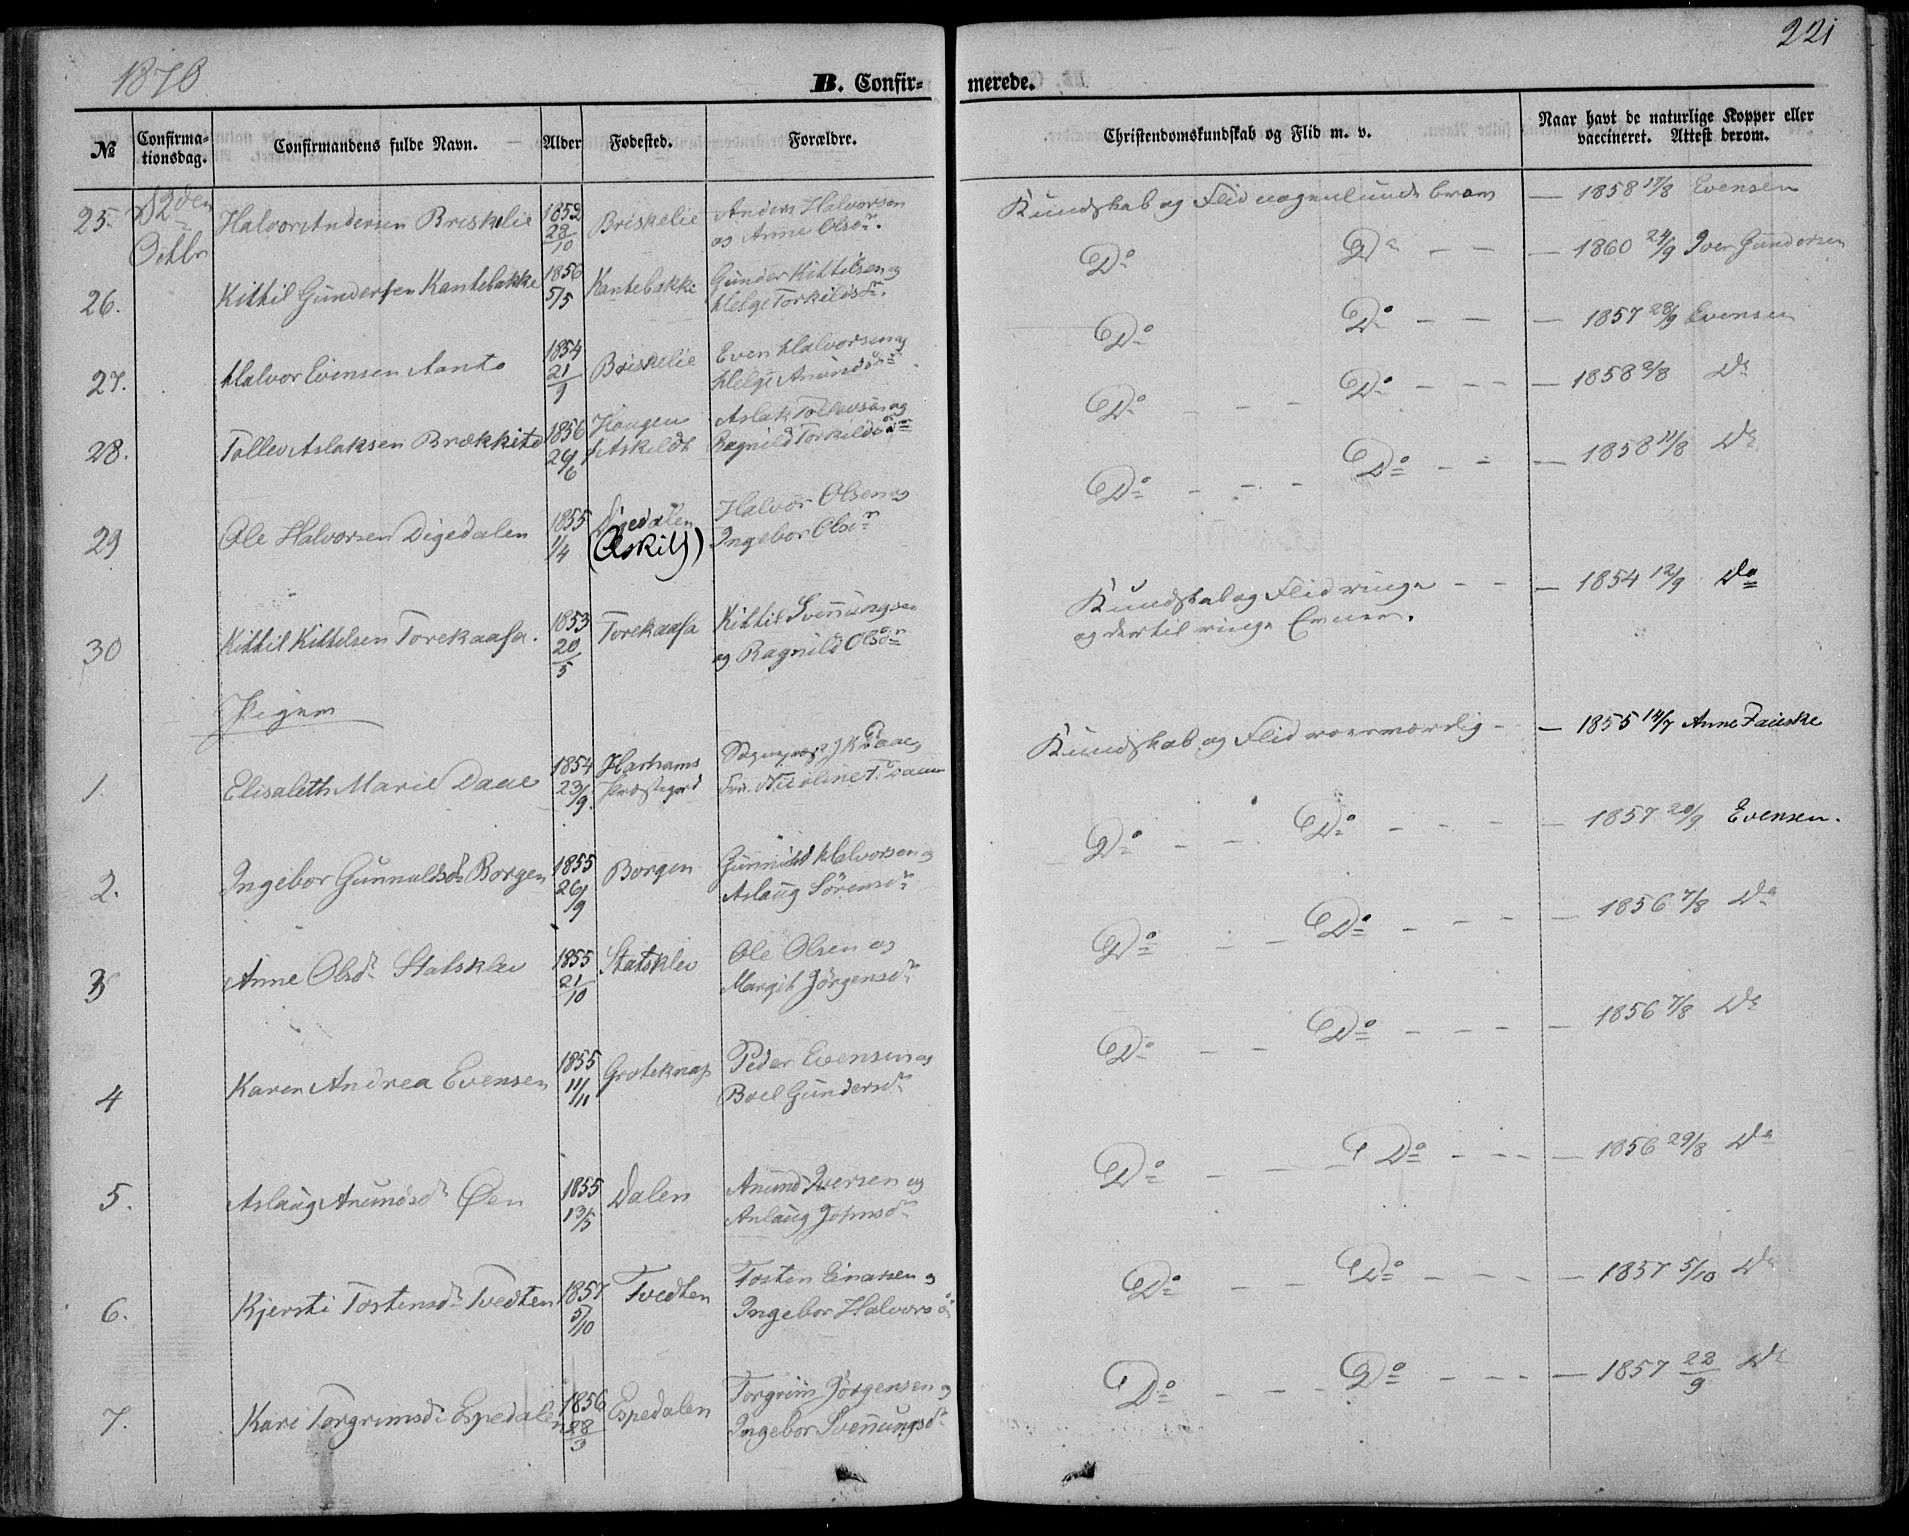 1870
221
B. Confir-
merede.
№
Confirma-
tionsdag.
Confirmandens fulde Navn.
Alder
Fødested.
Forældre.
Christendomskundskab og Flid m. v.
Naar havt de naturlige Kopper eller
vaccineret. Attest derom.
25. Halvor Andersen Briskelie 1852 28/10 Briskelie Anders Halvorsen
og Anne Olsdr. Kundskab og Flid nogenlunde — 1858 17/8 Evensen
Octbr
26. Kittil Gundersen Kantebakke 1856 5/5 Kantebakke Gunder Kittilsen og
Helge Torkilsdr. Do Do — — 1860 24/9 Iver Gundersen
27. Halvor Evensen 1854 21/9 Briskelie Even Halvorsen og
Helge Do Do — — 1857 28/9 Evensen
28. Tollev Aslaksen 1856 26/6 Haugen Aslak Tollevsen og
Ragnild Torkildsdr Do — — Do — — — 1858 2/8 Do
29 Ole Halvorsen Digedalen 1855 1/4 Digedalen Halvor Olsen og
(Askild) Ingebor Olsdr Do — — — Do — — 1858 11/8 Do
30 Kittil Kittelsen Torekaasa. 1853 20/5 Torekaasa Kittil Svennungsen
og Ragnild Olsdr Kundskab og Flid ringe — — 1854 12/9 Do
og dertil ringe Evner.
Piger
1. Elisabeth Marie Daae 1854 23/9 Præstegard J. K. Daae
Nicoline Kundskab og Flid roesværdig — — 1855 14/7 Anne
2. Ingebor Gunnuldsdr Borgen 1855 26/9 Borgen Gunnuld Halvorsen og
Aslaug Sørensdr Do — — Do — — — 1857 20/9 Evensen.
3 Anne Olsdr Statsklev 1855 21/10 Statsklev Ole Olsen og
Margit Jörgensdr Do — — Do — — — 1856 7/8 Do
4 Karen Andrea Evensen 1855 11/11 Groteknap Peder Evensen og
Boel Gundersdr Do — — Do — — — 1856 7/8 Do
5. Aslaug Anundsdr Øen 1855 13/5 Dalen Anund Iversen og
Anlaug Johnsdr Do — — — Do — — — 1856 29/8 Do
6. Kjersti Tostensdr Tvedten 1857 5/10 Tvedten Tosten Einarsen og
Ingebor Halvorsdr Do — — Do — — — 1857 5/10 Do
7. Kari Torgrimsdr Espedalen 1856 28/3 Espedalen Torgrim Jörgensen og
Ingebor Svennungsdr Do — — — Do — — — 1857 22/9 Do